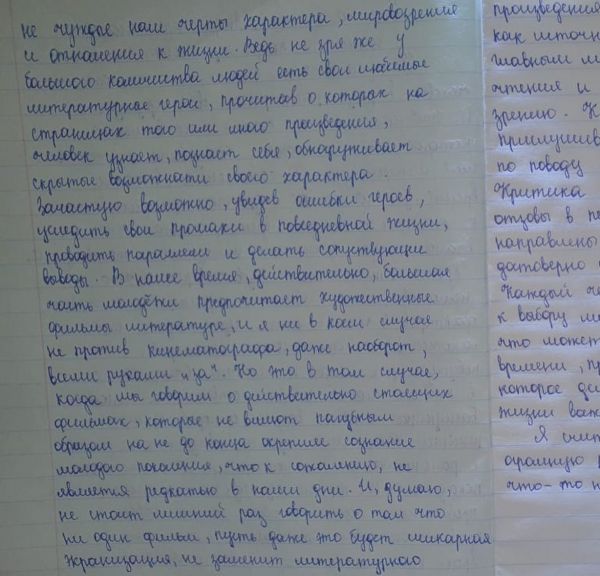 не чуждые нам черты характера, мировозрения
и отношения к жизни. Ведь не зря же у
большого количества людей есть свои любимые
литературные герои, прочитав о которых на
страницах того или иного произведения,
человек узнает, познает себя, обнаруживает
скрытые возможности своего характера.
Зачастую возможно, увидев ошибки героев,
уследить свои промахи в повседневной жизни,
проводить параллели и делать сопутствующие
выводы. В наше время, действительно, большая
часть молодёжи предпочитает художественные
фильмы литературе, и я ни в коем случае
не против кинематографа, даже наоборот,
всеми руками "за". Но это в том случае,
когда мы говорим о действительно стоящих
фильмах, которые не влияют пагубным
образом на не до конца окрепшее сознание
молодого поколения, что к сожалению, не
является редкостью в наши дни. И, думаю,
не стоит лишний раз говорить о том что
ни один фильм, пусть даже это будет шикарная
экранизация, не заменит литературного
произведения
как источн
главным
чтения и
зрению.
прислушив
по поводу
Критика
отзывы в
направлены
достоверно
Каждый че
к выбору
что может
времени,
которое
жизни
Я счит
огромную
что-то